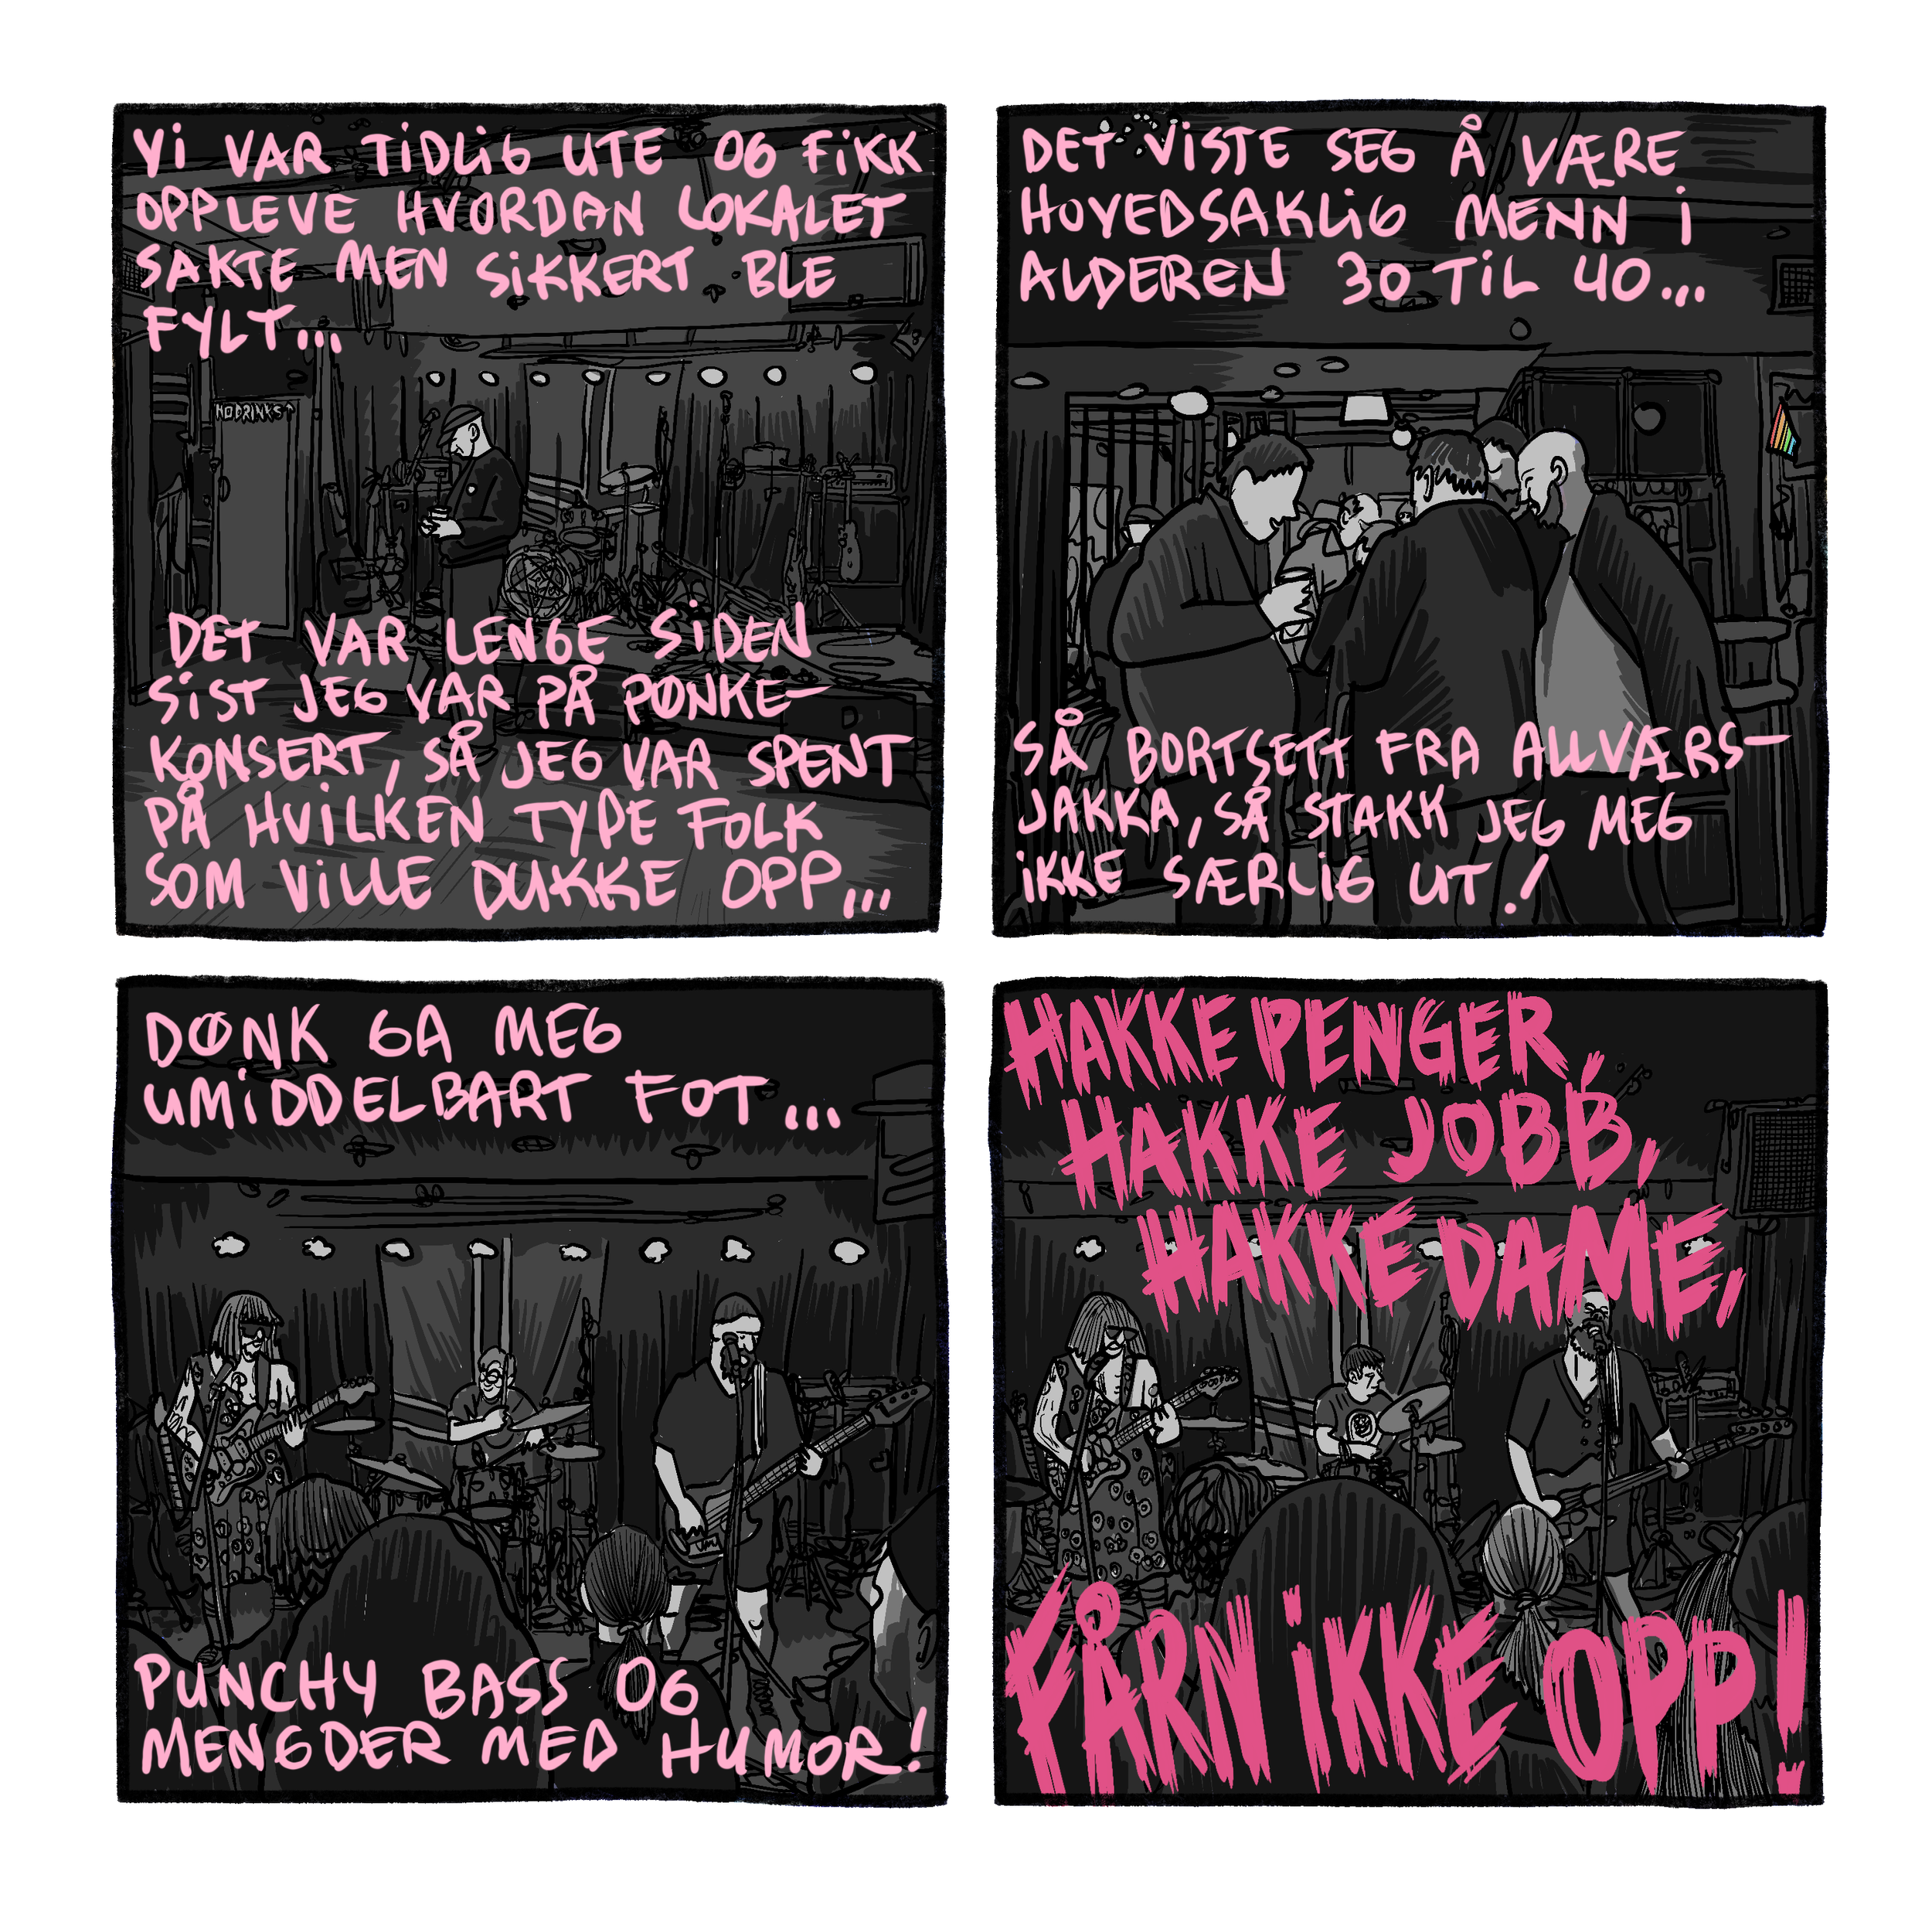 VI VAR TIDLIG UTE OG FIKK
OPPLEVE HVORDAN LOKALET
SAKTE MEN SIKKERT BLE
FYLT...
NO DRINKS
DET VAR LENGE SIDEN
SIST JEG VAR PÅ PØNKE-
KONSERT, SÅ JEG VAR SPENT
PÅ HVILKEN TYPE FOLK
SOM VILLE DUKKE OPP...
DET VISTE SEG Å VÆRE
HOVEDSAKLIG MENN I
ALDEREN 30 TIL 40...
SÅ BORTSETT FRA ALLVÆRS-
JAKKA, SÅ STAKK JEG MEG
IKKE SÆRLIG UT!
DØNK GA MEG
UMIDDELBART FOT...
PUNCHY BASS OG
MENGDER MED HUMOR!
HAKKE PENGER,
HAKKE JOBB,
HAKKE DAME,
FÅRN IKKE OPP!